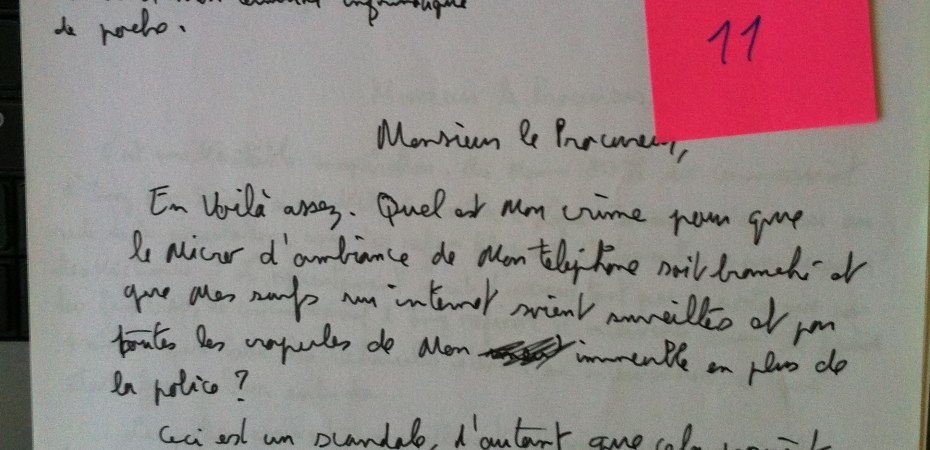 informatique
de poche.
11
Monsieur le Procureur,
En voilà assez. Quel est mon crime pour que
le micro d'ambiance de mon téléphone soit branché et
que mes surfs sur internet soient surveillés et par
toutes les crapules de mon immeuble en plus de
la police ?
Ceci est un scandale, d'autant que cela